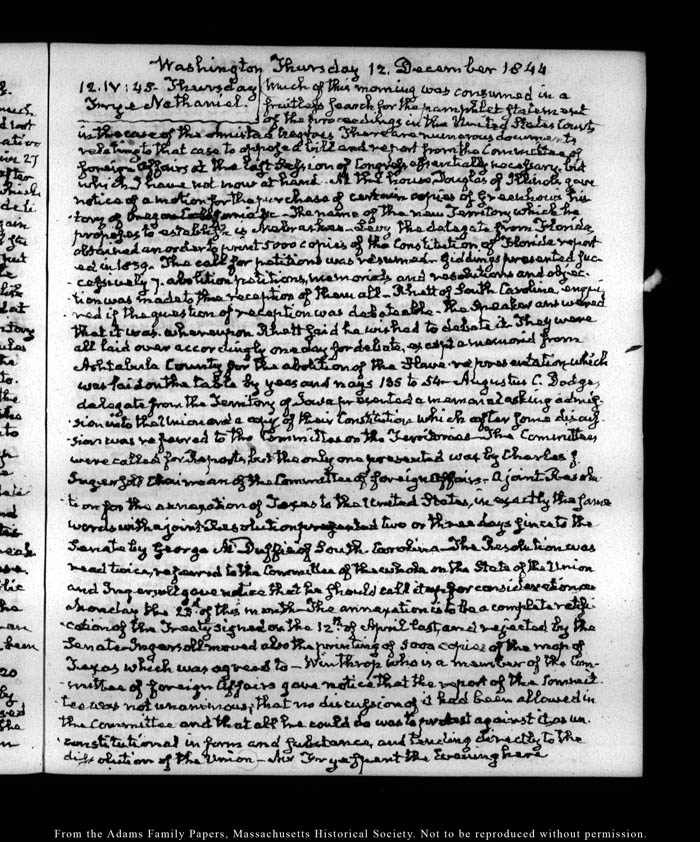 Washington Thursday 12. December 1844
12. IV:45. Thursday
Frye Nathaniel.
Much of this morning was consumed in a
fruitless search for the pamphlet statement
of the proceedings in the United States Courts
in the case of the Amistad Negroes. There are numerous documents
relating to that case to opposed bill and report from the Committee of
foreign Affairs at the last Session of Congress essentially necessary, but
which I have not now at hand. At the house, Douglas of Illinois gave
notice of a motion for the purchase of certain copies of Greenhow's his-
tory of Oregon California &c. The name of the new Territory which he
proposes to establish is Nebraska. Levy the delegate from Florida,
obtained an order to print 5000 copies of the Constitution of Florida report
ed in 1839. The call for petitions was resumed. Giddings presented suc-
cessively 7. abolition petitions, memorials and resolutions and objec-
tion was made to the reception of them all. Rhett of South Carolina enqui-
red if the question of reception was debateable. The Speaker answered
that it was. whereupon Rhett said he wished to debate it. They were
all laid over accordingly one day for debate, except a memorial from
Ashtabula County for the abolition of the Slave-representation, which
was laid on the table by yeas and nays 135 to 54. Augustus C. Dodge,
delegate from the Territory of Iowa presented a memorial asking admis-
sion into the Union and a copy of their Constitution which after some discus-
sion was referred to the Committee on the Territories. The Committees
were called for Reports, but the only one presented was by Charles J.
Ingersoll Chairman of the Committee of foreign Affairs. A joint Resolu-
tion for the annexation of Texas to the United States, in exactly the same
words with a joint Resolution presented two or three days since to the
Senate by George McDuffie of South Carolina. The Resolution was
read twice, referred to the Committee of the whole on the State of the Union
and Ingersoll gave notice that he should call it up for consideration on
Monday the 23d of this month. The annexation is to be a complete ratifi-
cation of the Treaty signed on the 12th of April last, and rejected by the
Senate. Ingersoll moved also the printing of 5000 copies of the map of
Texas which was agreed to. Winthrop who is a member of the Com-
mittee of foreign Affairs gave notice that the report of the Commit-
tee was not unanimous; that no discussion of it had been allowed in
the Committee and that all he could do was to protest against it as un-
constitutional in form and substance, and tending directly to the
dissolution of the Union. Mr Frye spent the Evening here
From the Adams Family Papers, Massachusetts Historical Society. Not to be reproduced without permission.